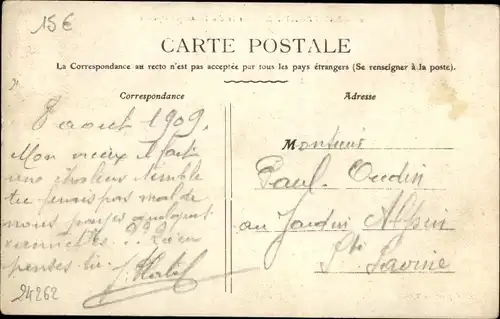 15€
CARTE POSTALE
La Correspondance au recto n'est pas acceptée par tous les pays étrangers (Se renseigner à la poste).
Correspondance
Adresse
8 aout 1909.
Mon vieux il fait
une chaleur
tu ferais pas mal de
nous
Monsieur
Paul Oudin
au Jardin Alpin
Ste
Savine
pensez tu.
24262